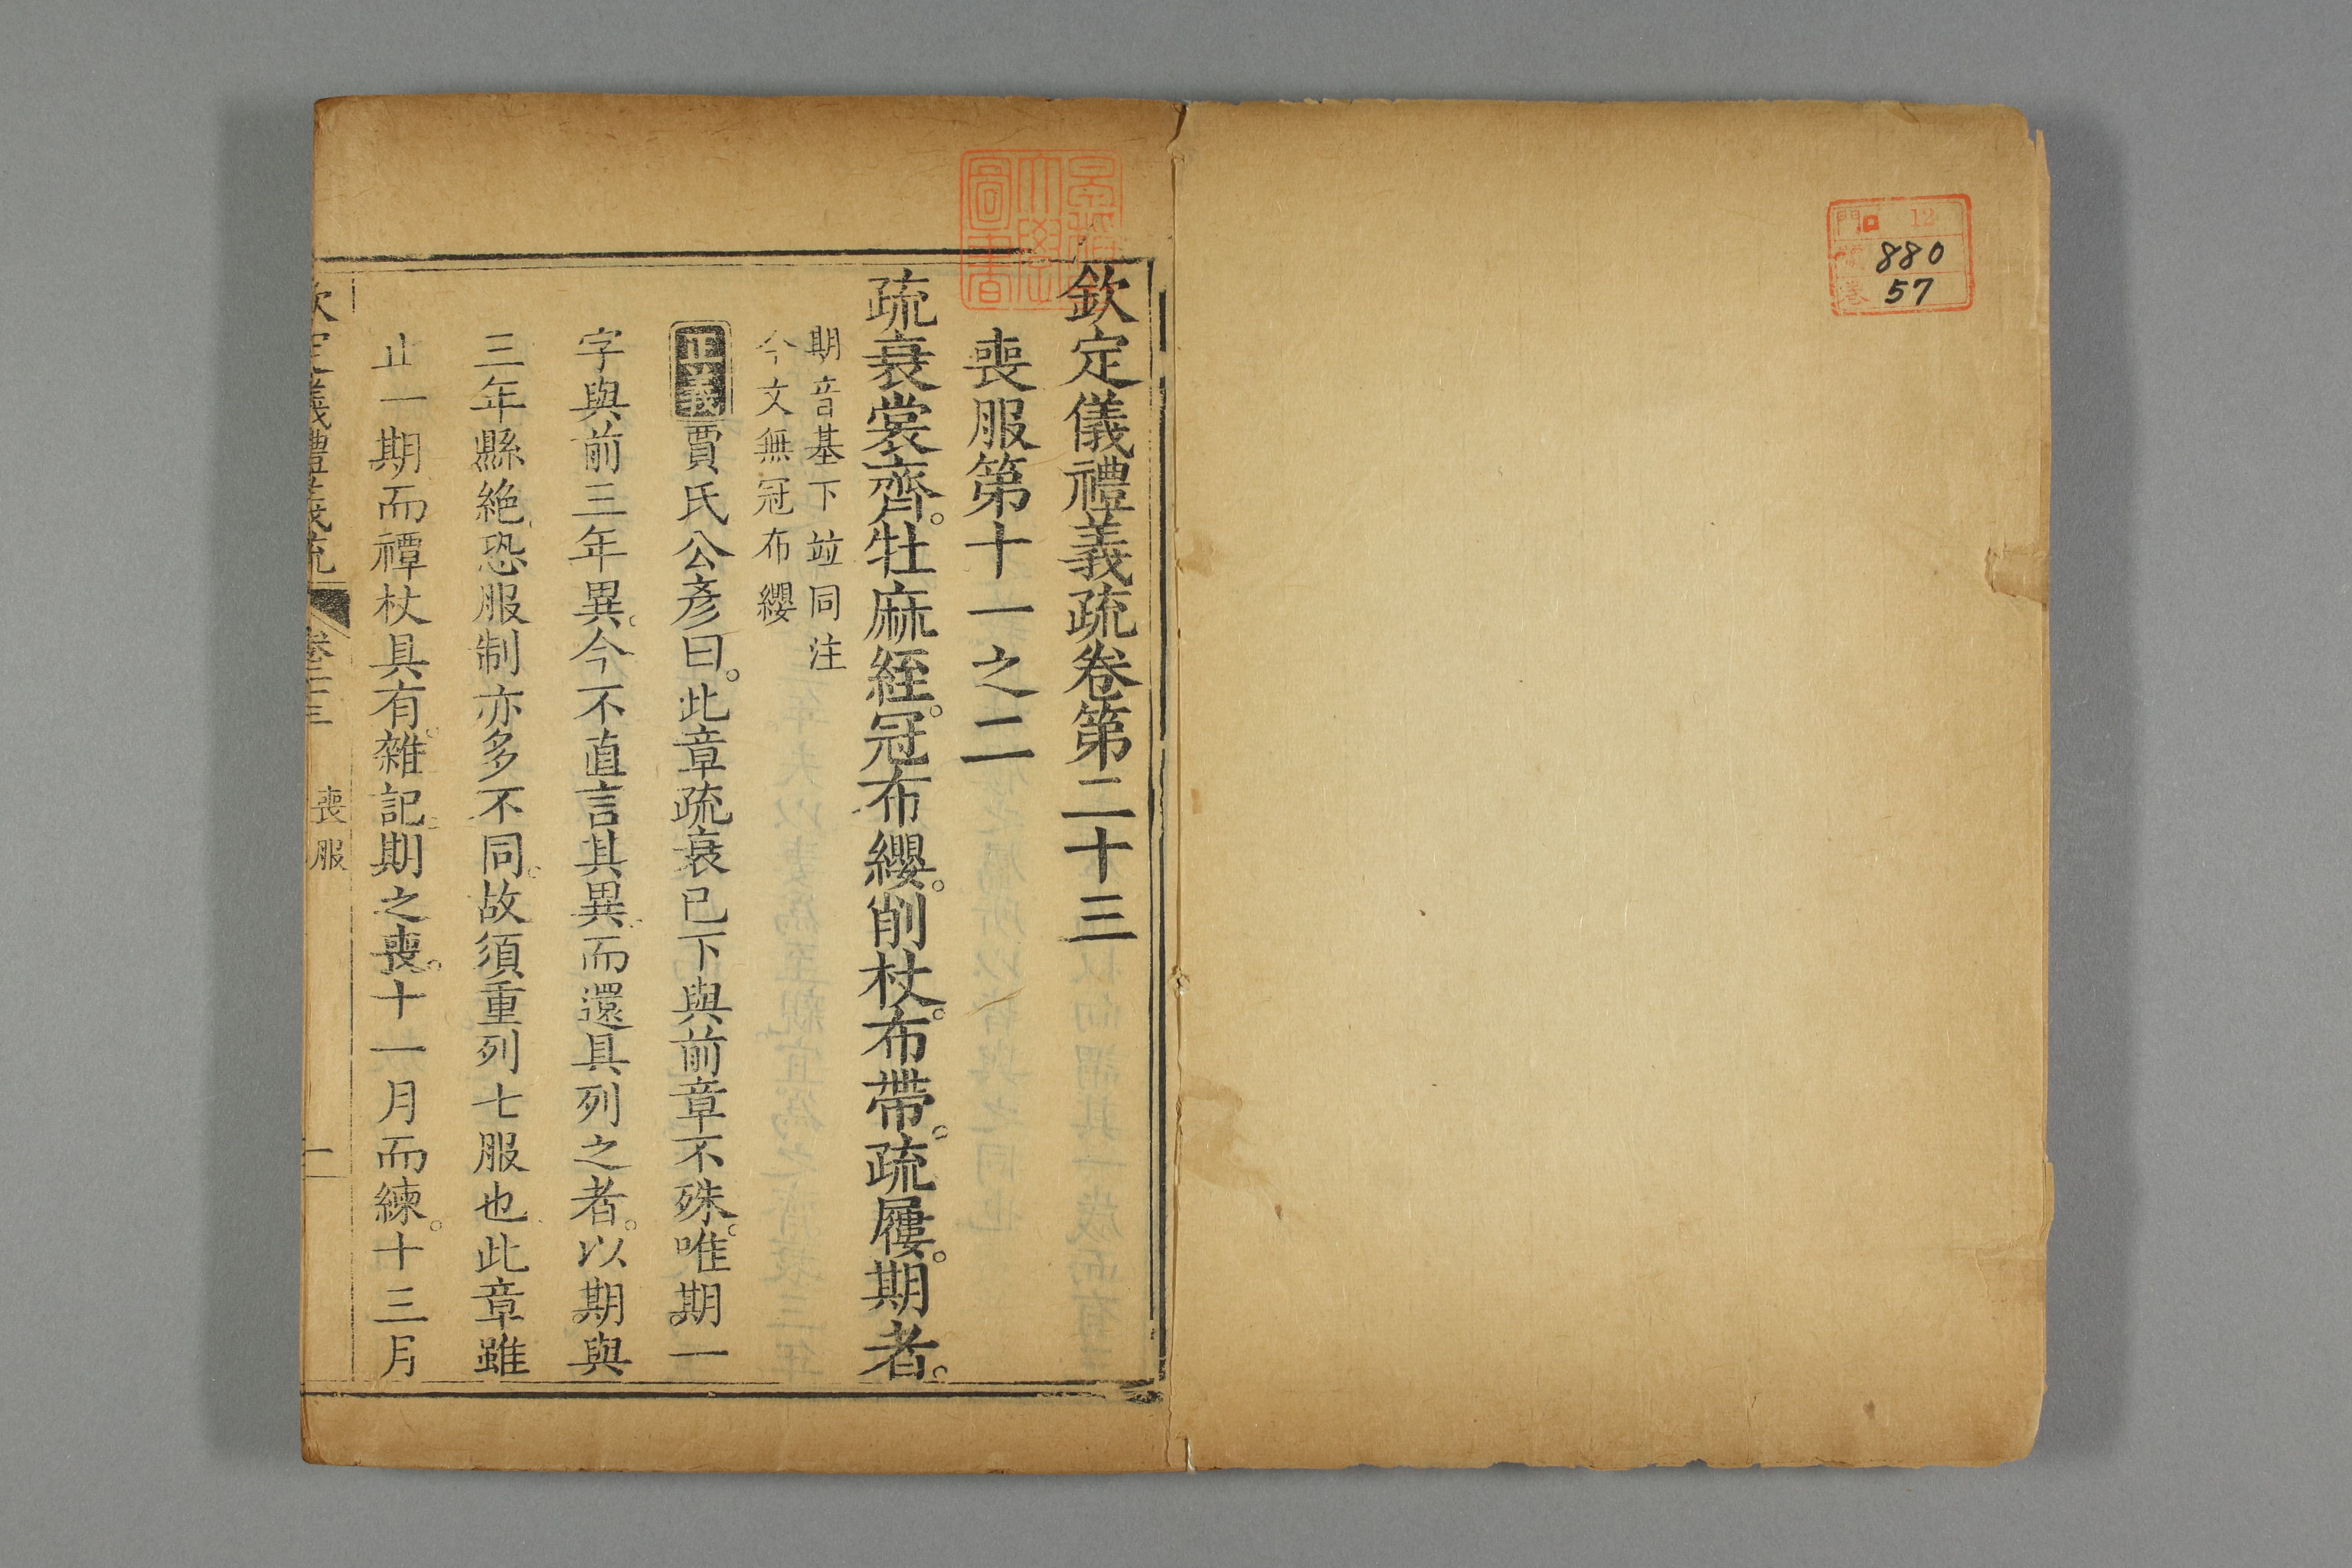 門 ロ 12
880
巻 57
早稲田大學圖書
欽定儀禮義疏卷第二十三
喪服第十一之二
疏衰裳齊。牡麻絰。冠布纓。削杖。布帶。疏屨。期者。
期音基下竝同注
今文無冠布纓
正義 賈氏公彥曰。此章疏衰已下與前章不殊。唯期一
字與前三年異。今不直言其異而還具列之者。以期與
三年縣絶恐服制亦多不同。故須重列七服也此章雖
止一期而禫杖具有。雜記。期之喪。十一月而練。十三月
欽定儀禮義疏 卷二十三 喪服 一